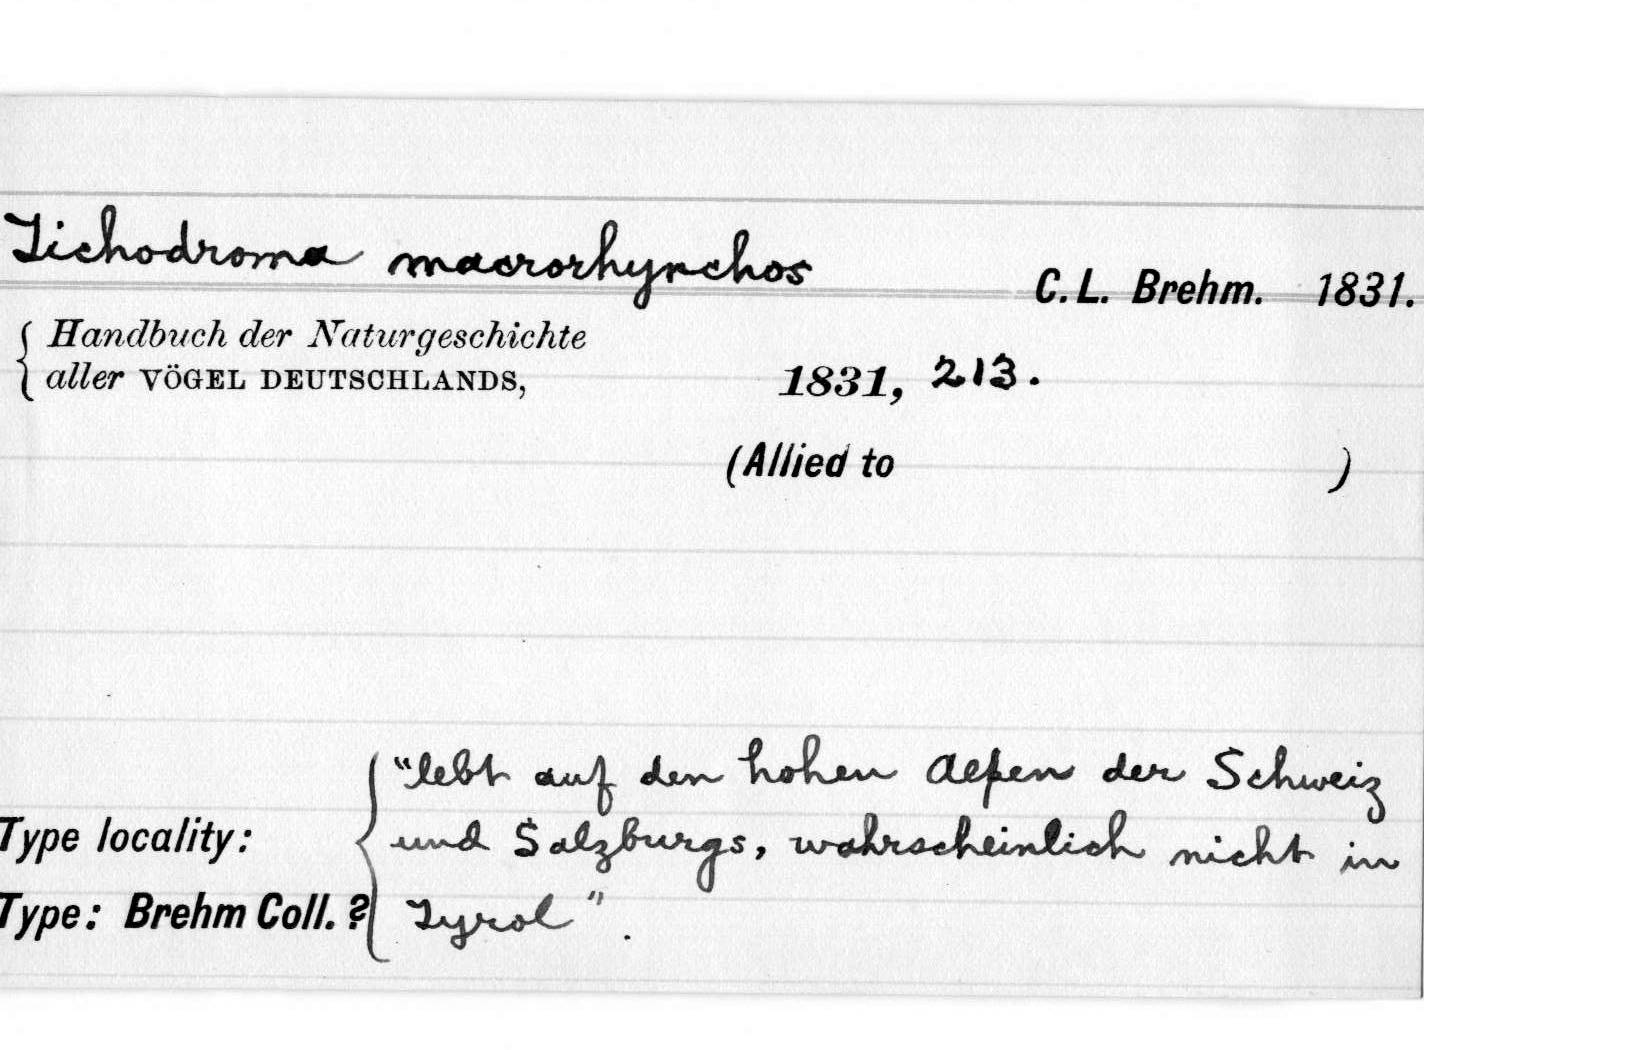 Tichodroma macrorhynchos C. L. Brehm. 1831.
Handbuch der Naturgeschichte
aller VÖGEL DEUTSCHLANDS, 1831, 213.
(Allied to )
"lebt auf den hohen Alpen der Schweiz
Type locality: und Salzburgs, wahrscheinlich nicht in
Type: Brehm Coll. ? Tyrol".